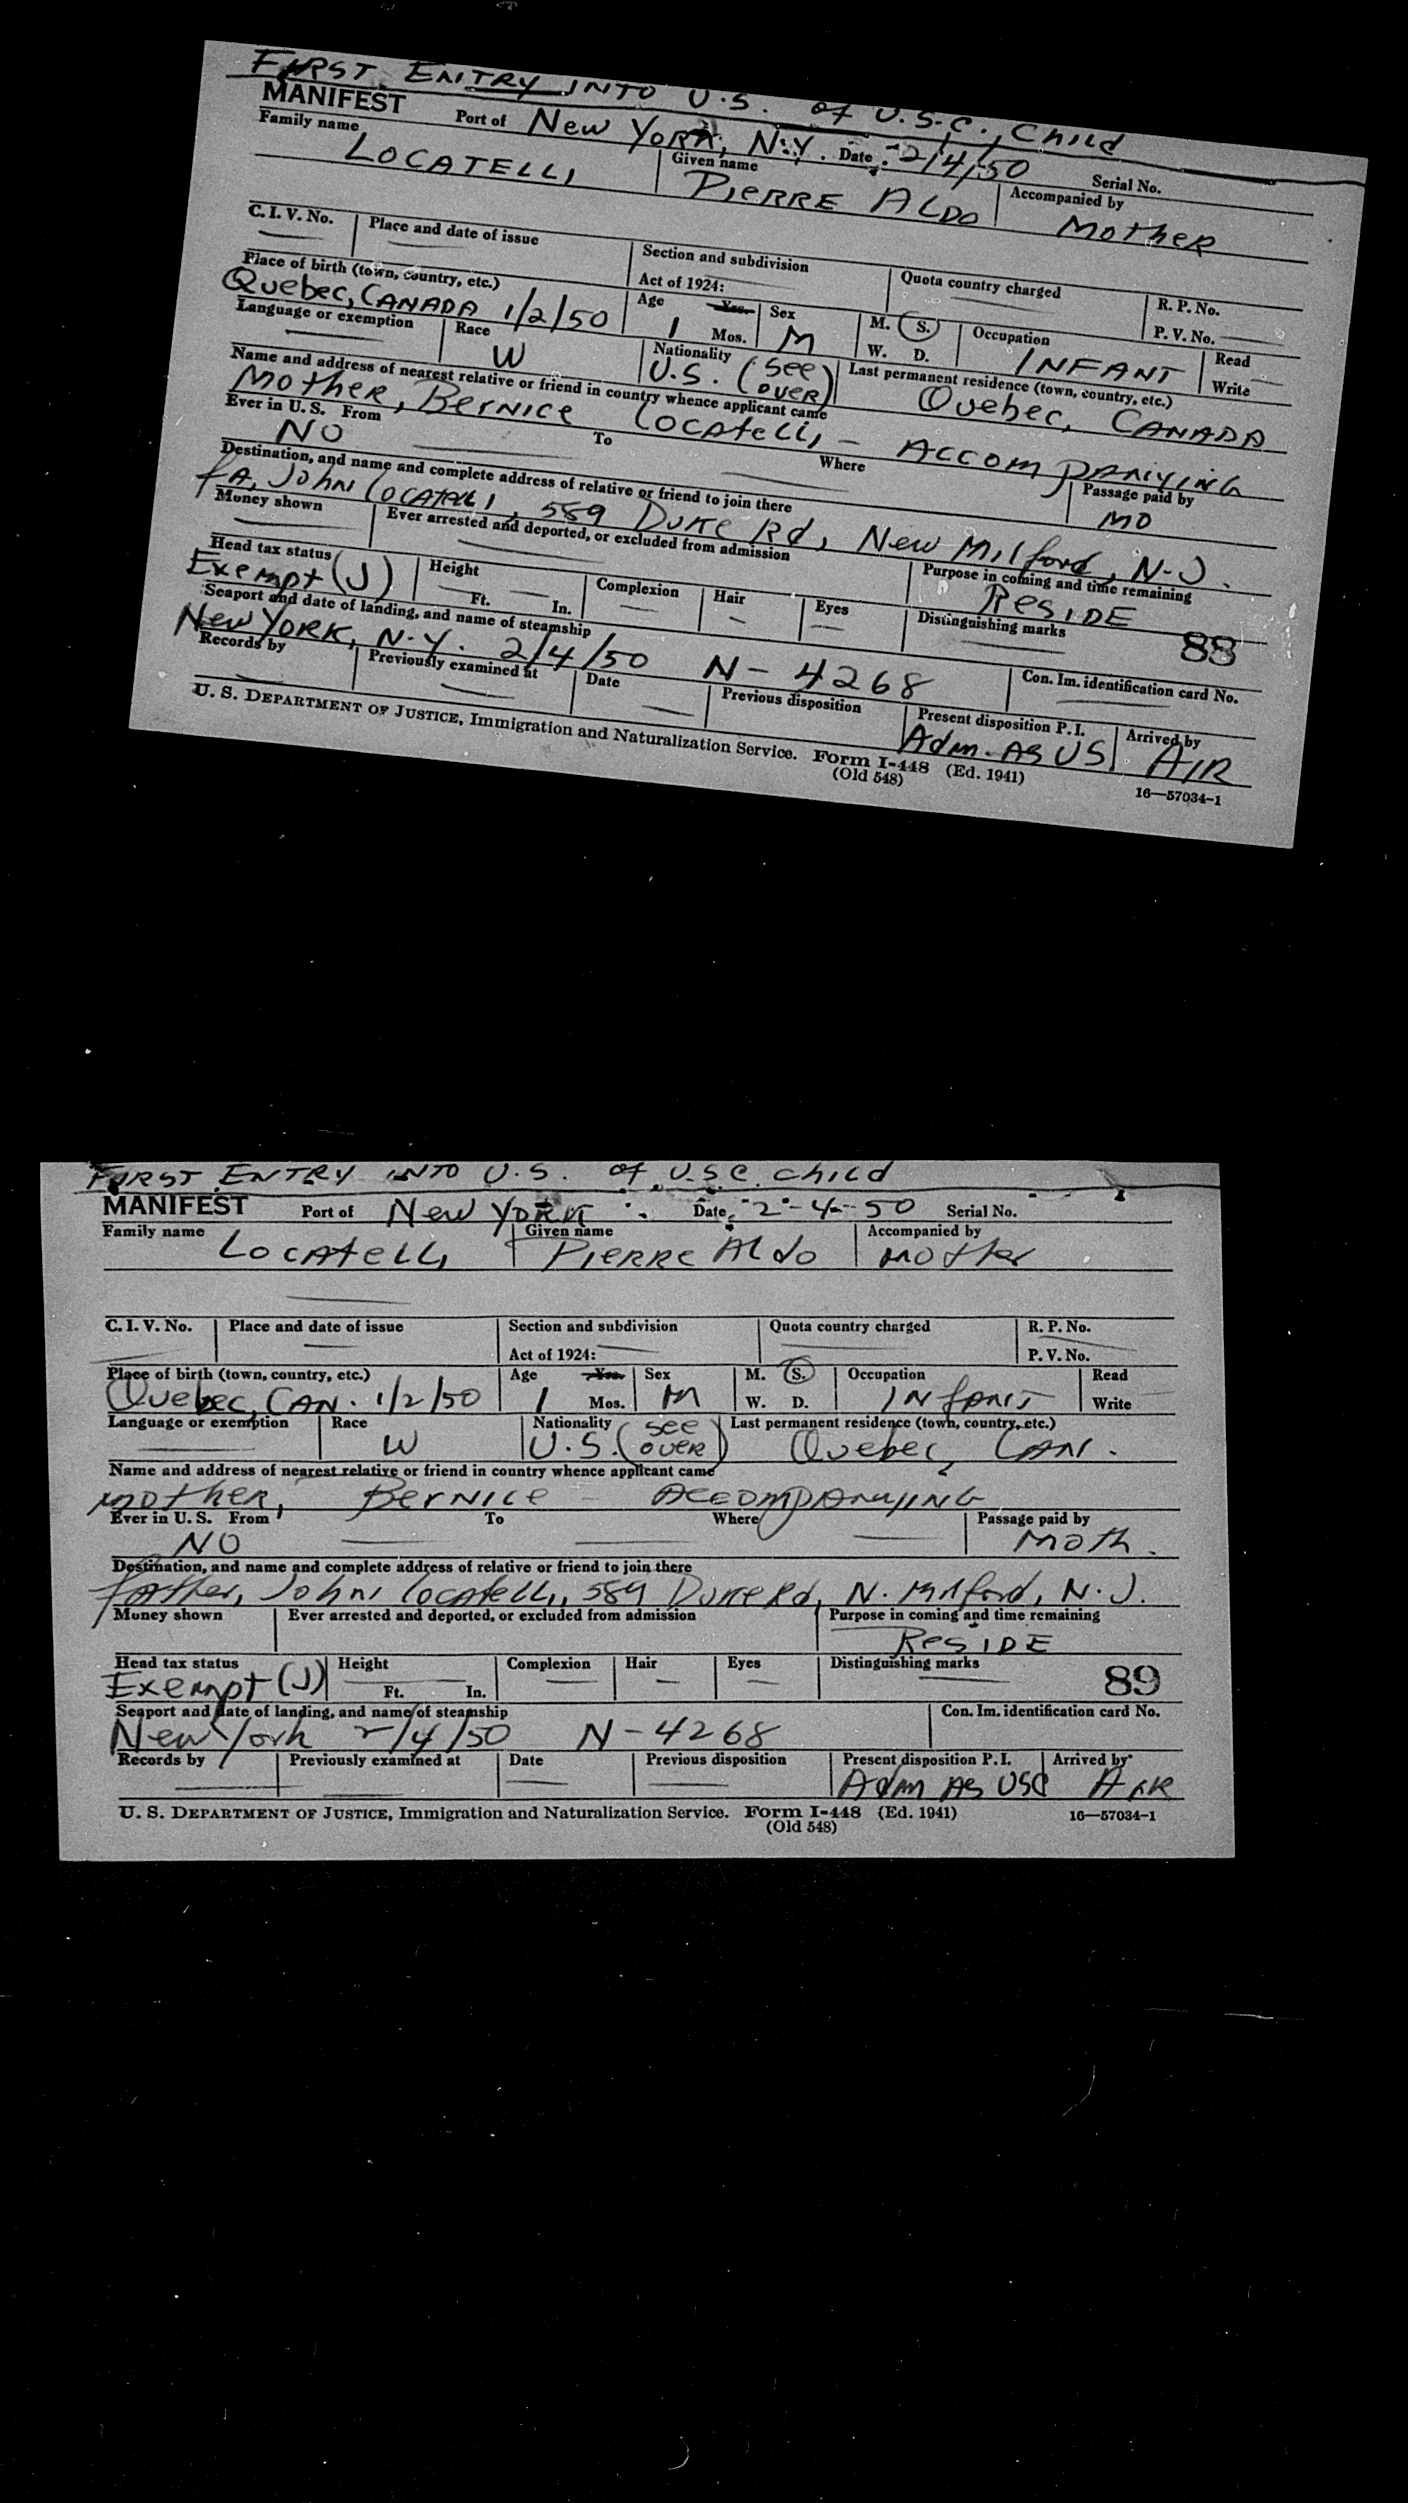 FIRST ENTRY INTO U.S. of U.S.C., Child
MANIFEST Port of New York, N.Y. Date 2/4/50 Serial No.
Family name Given name Accompanied by
LOCATELLI PIERRE ALDO Mother
C. I. V. No. Place and date of issue Section and subdivision Quota country charged R. P. No.
Act of 1924: P. V. No.
Place of birth (town, country, etc.) Age Yrs. Sex M. S. Occupation Read
Quebec, CANADA 1/2/50 1 Mos. M W. D. INFANT Write
Language or exemption Race Nationality Last permanent residence (town, country, etc.)
W U.S. (see over) Quebec, CANADA
Name and address of nearest relative or friend in country whence applicant came
Mother, Bernice Locatelli, - Accompanying
Ever in U. S. From To Where Passage paid by
NO Mo
Destination, and name and complete address of relative or friend to join there
fa, John Locatelli, 589 Duke Rd, New Milford, N.J.
Money shown Ever arrested and deported, or excluded from admission Purpose in coming and time remaining
RESIDE
Head tax status Height Complexion Hair Eyes Distinguishing marks
Exempt (J) Ft. In. 88
Seaport and date of landing, and name of steamship Con. Im. identification card No.
New York, N.Y. 2/4/50 N-4268
Records by Previously examined at Date Previous disposition Present disposition P. I. Arrived by
Adm. as US AIR
U. S. DEPARTMENT OF JUSTICE, Immigration and Naturalization Service. Form I-448 (Ed. 1941) 16—57034-1
(Old 548)
FIRST ENTRY INTO U.S. of U.S.C. child
MANIFEST Port of New York Date 2-4-50 Serial No.
Family name Given name Accompanied by
Locatelli Pierre Aldo Mother
C. I. V. No. Place and date of issue Section and subdivision Quota country charged R. P. No.
Act of 1924: P. V. No.
Place of birth (town, country, etc.) Age Yrs. Sex M. S. Occupation Read
Quebec, CAN. 1/2/50 1 Mos. M W. D. INfANT Write
Language or exemption Race Nationality Last permanent residence (town, country, etc.)
W U.S. (see over) Quebec, CAN.
Name and address of nearest relative or friend in country whence applicant came
Mother, Bernice - Accompanying
Ever in U. S. From To Where Passage paid by
NO Moth.
Destination, and name and complete address of relative or friend to join there
father, John Locatelli, 589 Duke Rd, N. Milford, N.J.
Money shown Ever arrested and deported, or excluded from admission Purpose in coming and time remaining
RESIDE
Head tax status Height Complexion Hair Eyes Distinguishing marks
Exempt (J) Ft. In. 89
Seaport and date of landing, and name of steamship Con. Im. identification card No.
New York 2/4/50 N-4268
Records by Previously examined at Date Previous disposition Present disposition P. I. Arrived by
Adm as USC AIR
U. S. DEPARTMENT OF JUSTICE, Immigration and Naturalization Service. Form I-448 (Ed. 1941) 16—57034-1
(Old 548)